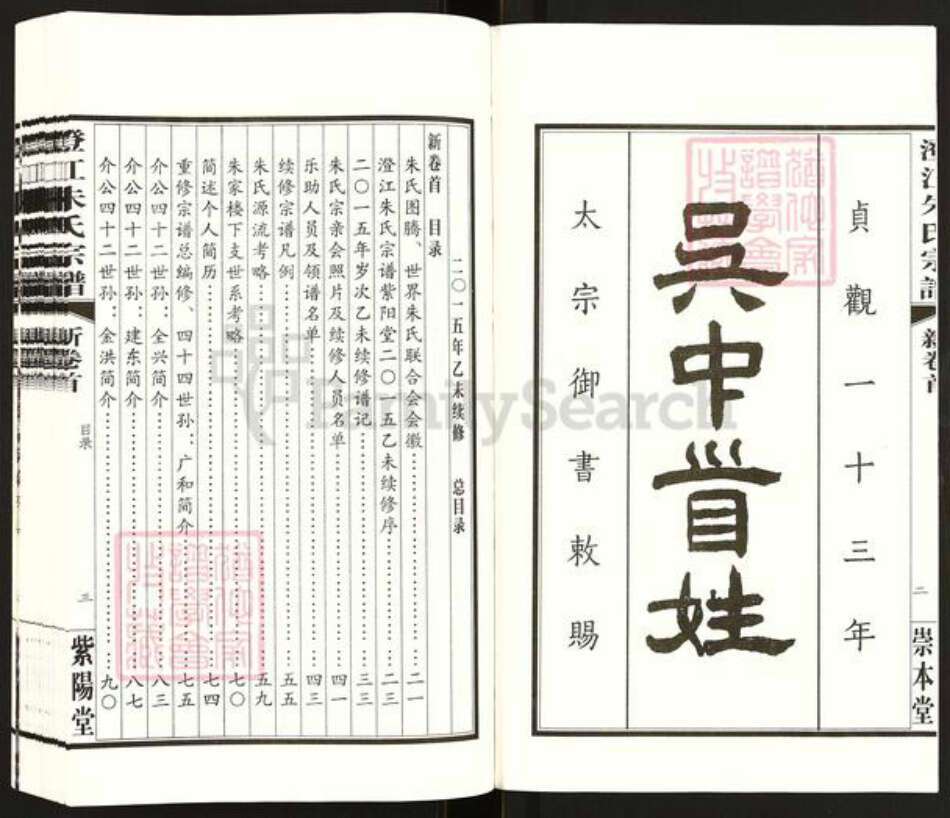 澄江朱氏宗譜 新卷首
二
崇本堂
貞觀一十三年
吳中首姓
太宗御書敕賜
二〇一五年乙未续修 总目录
新卷首 目录
朱氏图腾、世界朱氏联合会会徽 二一
澄江朱氏宗谱紫阳堂二〇一五乙未续修序 二三
二〇一五年岁次乙未续修谱记 三三
朱氏宗亲会照片及续修人员名单 四一
乐助人员及领谱名单 四三
续修宗谱凡例 五五
朱氏源流考略 五九
朱家楼下支世系考略 七〇
简述个人简历 七四
重修宗谱总编修、四十四世孙:广和简介 七五
介公四十二世孙:全兴简介 八三
介公四十二世孙:建东简介 八七
介公四十二世孙:金洪简介 九〇
澄江朱氏宗譜 新卷首
目录
三
紫陽堂
FamilySearch